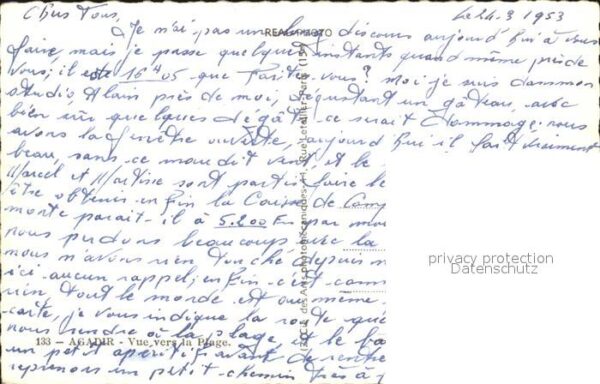 Chers Tous,
Le 24-3 1953
Je n'ai pas un long discours aujourd'hui à vous
faire, mais je passe quelques instants quand même près de
vous; il est 16H05 que faites-vous? Moi je suis dans mon
studio Alain près de moi, dégustant un gâteau, avec
bien sûr quelques dégâts ce serait dommage; nous
avons la fenêtre ouverte, aujourd'hui il fait vraiment
beau, sans ce maudit vent, et le
Marcel et Martine sont partis faire le
obtenir enfin la Caisse de
monte parait-il à 5.200 Frs par
nous perdons beaucoup avec la
nous n'avons rien touché depuis
ici aucun rappel; enfin c'est comme
rien tout le monde est au même
carte, je vous indique la route que
nous rendre à la plage, et le
un petit apéritif avant de rentrer
reprenons un petit chemin près
REAL-PHOTO
133 - AGADIR - Vue vers la Plage.
privacy protection
Datenschutz